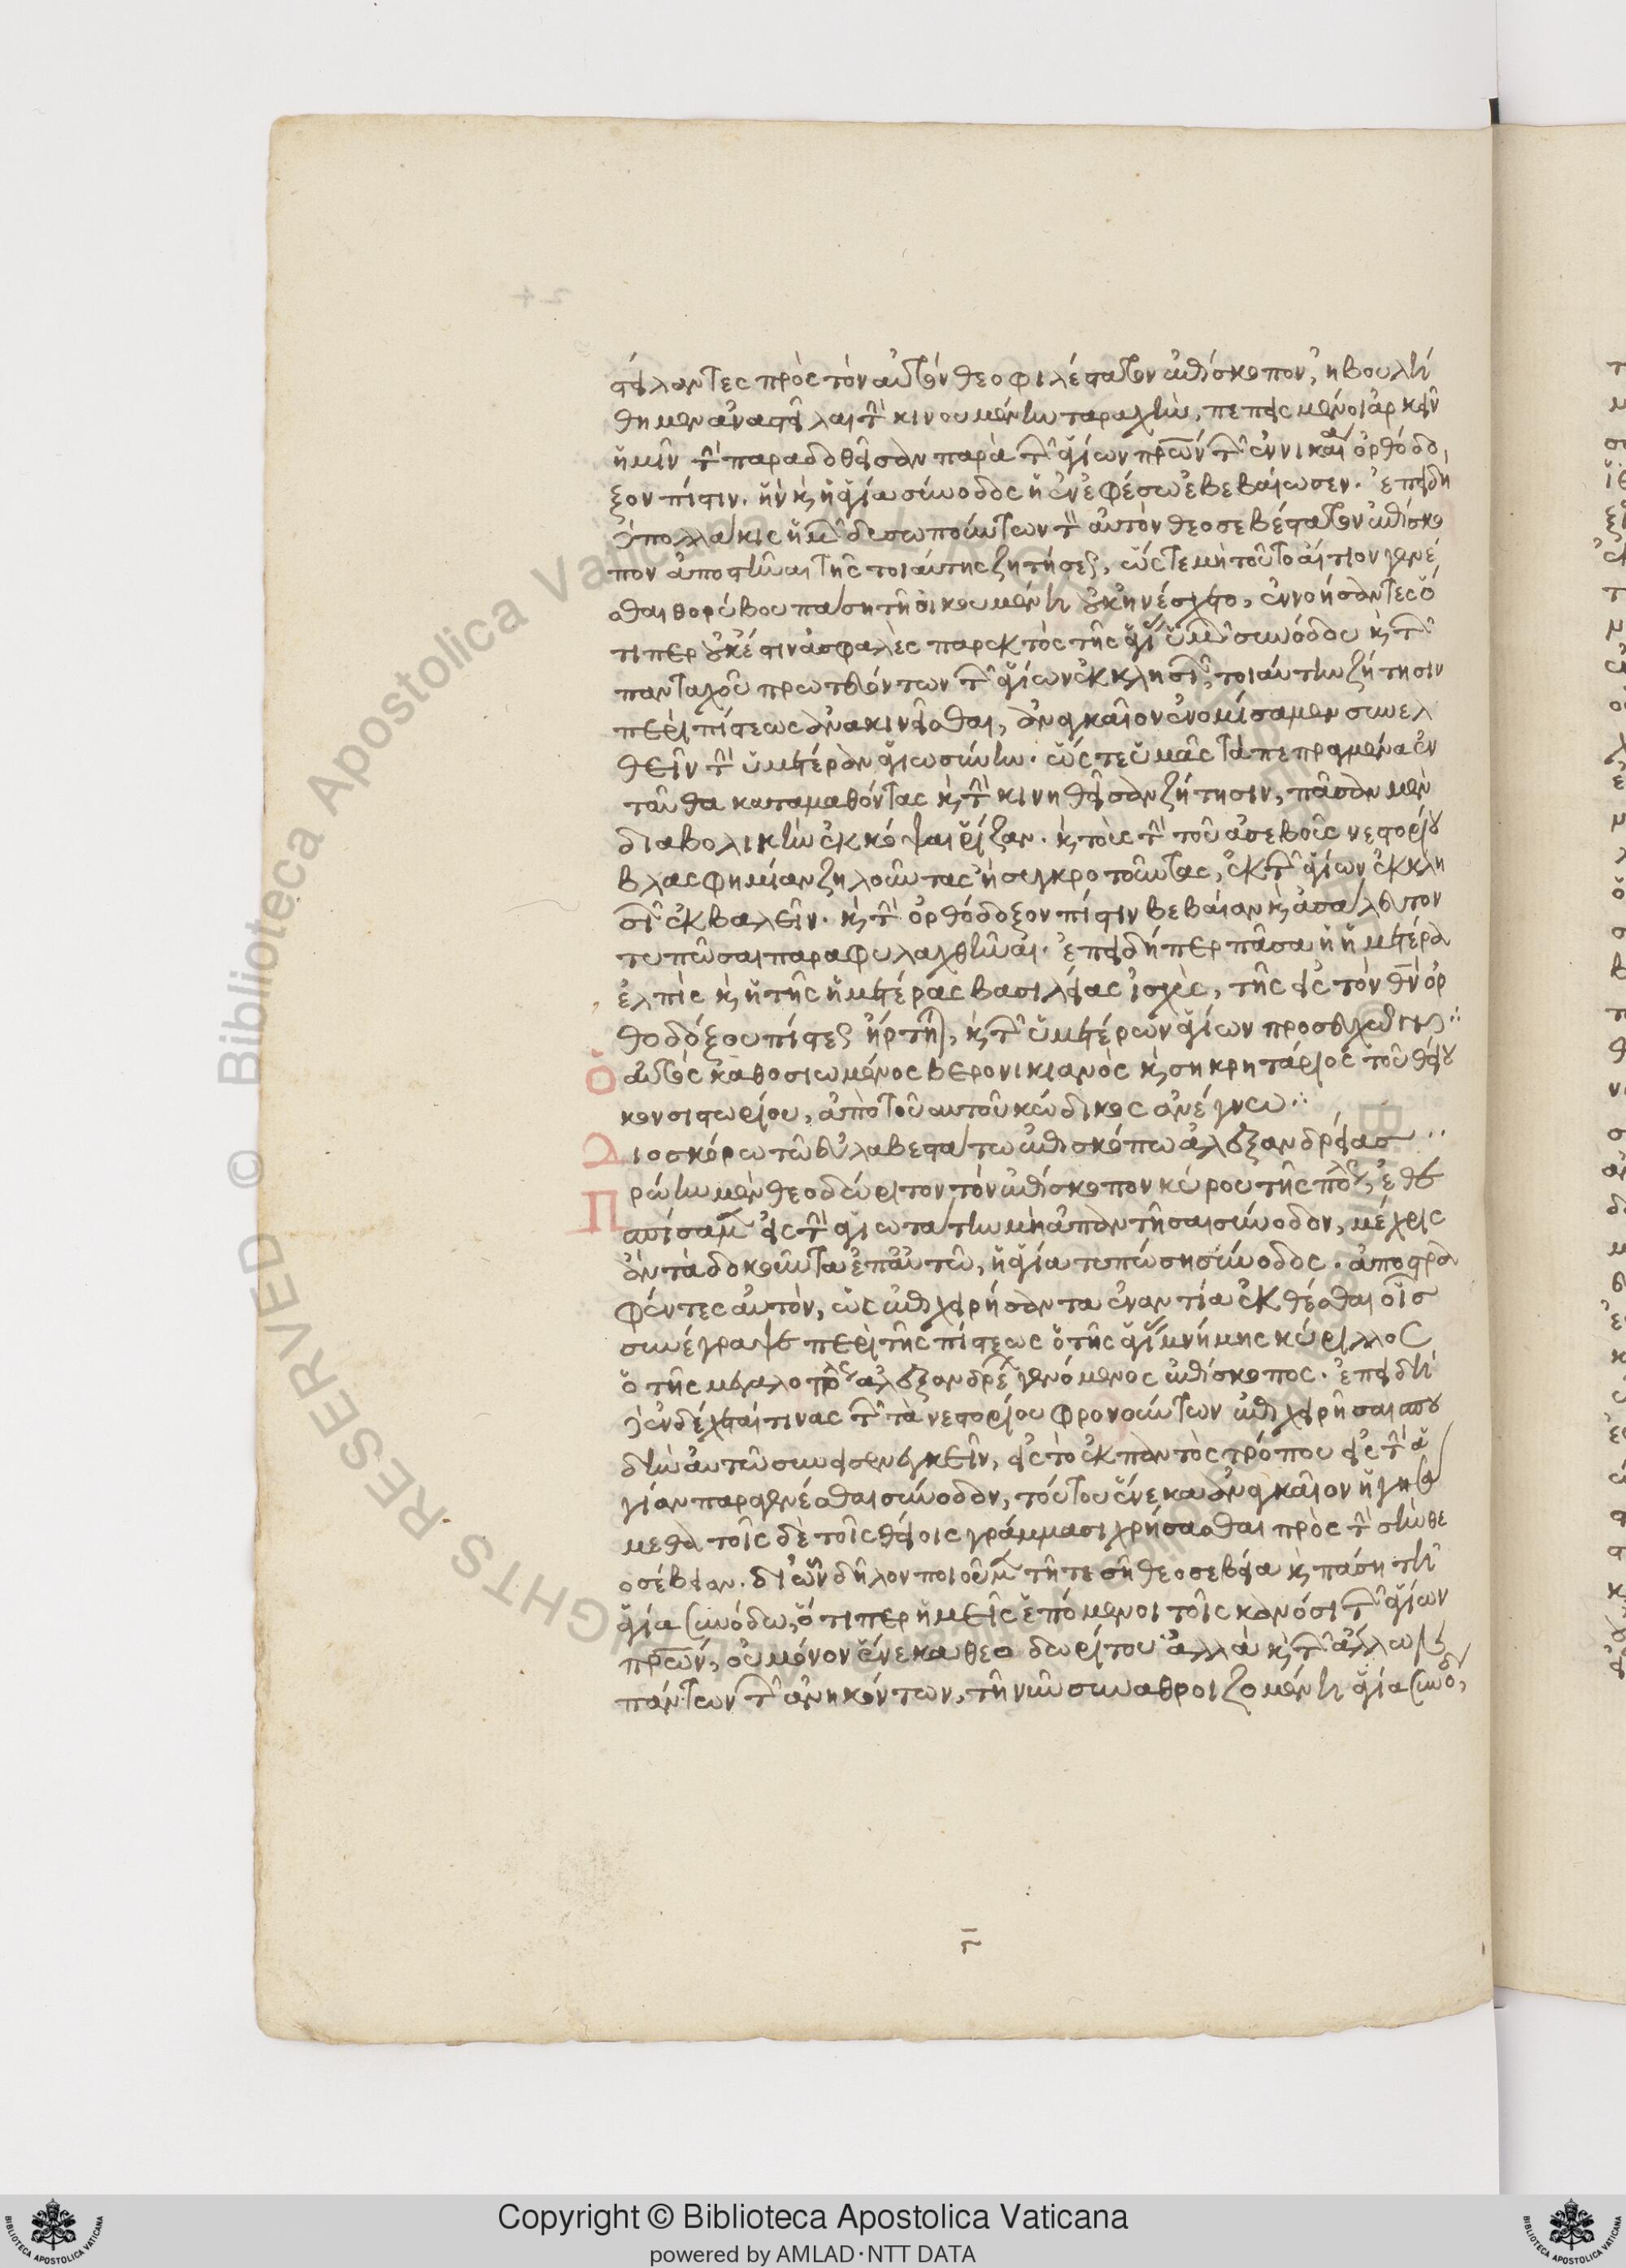 στείλαντες πρὸς τὸν αὐτὸν θεοφιλέστατον ἐπίσκοπον, ἠβουλή
θημεν ἀναστεῖλαι τὴν κινουμένην ταραχὴν, πεπεισμένοι ἀρκεῖν
ἡμῖν τὴν παραδοθεῖσαν παρὰ τῶν ἁγίων πρων τῶν ἐν νικαία ὀρθόδο
ξον πίστιν. ἣν κ ἡ ἁγία σύνοδος ἡ ἐν ἐφέσω ἐβεβαίωσεν. ἐπειδὴ
πολλάκις ἡμῶν δυσωπούντων τὸν αὐτὸν θεοσεβέστατον ἐπίσκο
πον ἀποστῆναι τῆς τοιαύτης ζητήσεως, ὥστε μὴ τοῦτο αἴτιον γενέ
σθαι θορύβου πάση τῆ οἰκουμένη οὐκ ἠνέσχετο, ἐννοήσαντες ὅ
τι περ οὐκ ἔστιν ἀσφαλὲς παρεκτὸς τῆς ἁγίας ὑμῶν συνόδου κ τῶν
πανταχοῦ πρωτευόντων τῶν ἁγίων ἐκκλησιῶν, τοιαύτην ζήτησιν
περὶ πίστεως ἀνακινεῖσθαι, ἀναγκαῖον ἐνομίσαμεν συνελ
θεῖν τὴν ὑμετέραν ἁγιωσύνην. ὥστε ὑμᾶς τὰ πεπραγμένα ἐν
ταῦθα καταμαθόντας κ τὴν κινηθεῖσαν ζήτησιν, πᾶσαν μὲν
διαβολικὴν ἐκκόψαι ῥίζαν. κ τοὺς τὴν τοῦ ἀσεβοῦς νεστορίου
βλασφημίαν ζηλοῦντας ἢ συγκροτοῦντας, ἐκ τῶν ἁγίων ἐκκλη
σιῶν ἐκβαλεῖν. κ τὴν ὀρθόδοξον πίστιν βεβαίαν κ ἀσάλευτον
τυπῶσαι παραφυλαχθῆναι. ἐπειδήπερ πᾶσα ἡ ἡμετέρα
ἐλπὶς κ ἡ τῆς ἡμετέρας βασιλείας ἰσχὺς, τῆς εἰς τὸν θν ὀρ
θοδόξου πίστεως ἤρτηται, κ τῶν ὑμετέρων ἁγίων προσευχῶν
ὁ αὐτὸς καθοσιωμένος βερονικιανὸς κ σηκρητάριος τοῦ θείου
κονσιστωρίου, ἀπὸ τοῦ αυτοῦ κώδικος ἀνέγνω
Διοσκόρω τῶ εὐλαβεστάτω ἐπισκόπω ἀλεξανδρείας
Πρώην μὲν θεοδώριτον τὸν ἐπίσκοπον κύρου τῆς πόλεως, ἐθε
σπίσαμεν εἰς τὴν ἁγιωτάτην μὴ ἀπαντῆσαι σύνοδον, μέχρις
ἂν τὰ δοκοῦντα ἐπ' αὐτῶ, ἡ ἁγία τυπώση σύνοδος. ἀποστρα
φέντες αὐτὸν, ὡς ἐπιχειρήσαντα ἐναντία ἐκθέσθαι οἷς
συνέγραψε περὶ τῆς πίστεως ὁ τῆς ἁγίας μνήμης κύριλλος
ὁ τῆς μεγαλοπόλεως ἀλεξανδρείας γενόμενος ἐπίσκοπος. ἐπειδὴ
ἐνδέχεταί τινας τῶν τὰ νεστορίου φρονούντων ἐπιχειρῆσαι σπου
δὴν αὐτῶ συνεισενεγκεῖν, εἰς τὸ ἐκ παντὸς τρόπου εἰς τὴν ἁ
γίαν παραγενέσθαι σύνοδον, τούτου ἕνεκα ἀναγκαῖον ἡγησά
μεθα τοῖς δὲ τοῖς θείοις γράμμασι χρήσασθαι πρὸς τὴν σὴν θε
οσέβειαν. δι ὧν δῆλον ποιοῦμεν τῆ τε σῆ θεοσεβεία κ πάση τῆ
ἁγία συνόδω, ὅτι περ ἡμεῖς ἑπόμενοι τοῖς κανόσι τῶν ἁγίων
πρων, οὐ μόνον ἕνεκα θεοδωρίτου ἀλλὰ κ τῶν ἄλλων
πάντων τῶν ἀνηκόντων, τῆ νῦν συναθροιζομένη ἁγία συνόδ
Γ
Copyright © Biblioteca Apostolica Vaticana
powered by AMLAD·NTT DATA